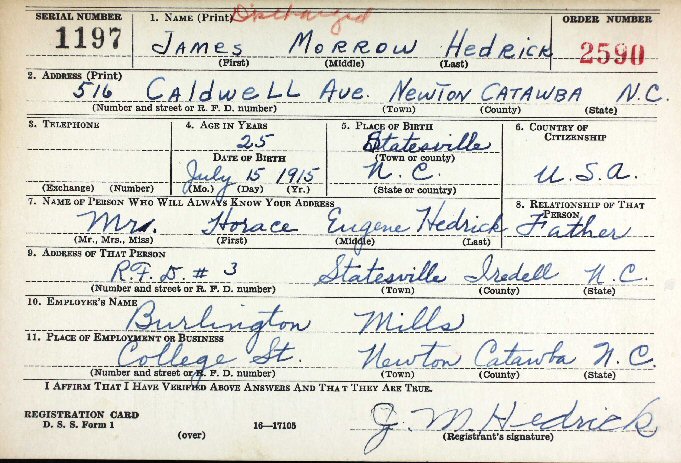 SERIAL NUMBER
1197
1. NAME (Print) Discharged
JAMES MORROW HEDRICK
(First) (Middle) (Last)
ORDER NUMBER
2590
2. ADDRESS (Print)
516 CALDWELL AVE. NEWTON CATAWBA N.C.
(Number and street or R. F. D. number) (Town) (County) (State)
3. TELEPHONE
(Exchange) (Number)
4. AGE IN YEARS
25
DATE OF BIRTH
July 15 1915
(Mo.) (Day) (Yr.)
5. PLACE OF BIRTH
Statesville
(Town or county)
N.C.
(State or country)
6. COUNTRY OF
CITIZENSHIP
U.S.A.
7. NAME OF PERSON WHO WILL ALWAYS KNOW YOUR ADDRESS
Mr. Horace Eugene Hedrick
(Mr., Mrs., Miss) (First) (Middle) (Last)
8. RELATIONSHIP OF THAT
PERSON
Father
9. ADDRESS OF THAT PERSON
R.F.D. # 3 Statesville Iredell N.C.
(Number and street or R. F. D. number) (Town) (County) (State)
10. EMPLOYER'S NAME
Burlington Mills
11. PLACE OF EMPLOYMENT OR BUSINESS
College St. Newton Catawba N.C.
(Number and street or R. F. D. number) (Town) (County) (State)
I AFFIRM THAT I HAVE VERIFIED ABOVE ANSWERS AND THAT THEY ARE TRUE.
REGISTRATION CARD
D. S. S. Form 1
(over)
16—17105
J. M. Hedrick
(Registrant's signature)